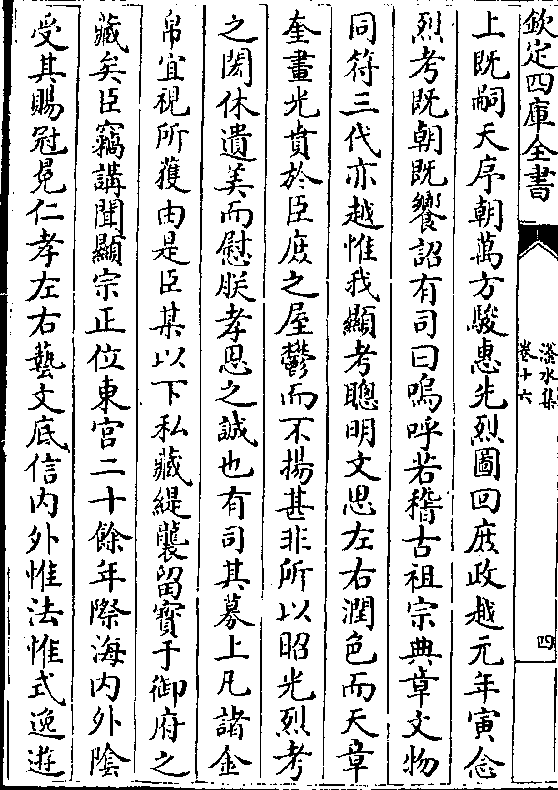 欽定四庫全書
滏水集
卷十六
四
上既嗣天序朝萬方駿惠先烈圖回庶政越元年寅念
烈考既朝既饗詔有司曰嗚呼若稽古祖宗典章文物
同符三代亦越惟我顯考聰明文思左右潤色而天章
奎畫光賁於臣庶之屋鬱而不揚甚非所以昭光烈考
之閎休遺美而慰朕孝思之誠也有司其募上凡諸金
帛宜視所獲由是臣某以下私藏緹襲留寶于御府之
藏矣臣竊講聞顯宗正位東宮二十餘年際海内外陰
受其賜冠冕仁孝左右藝文底信内外惟法惟式逸遊